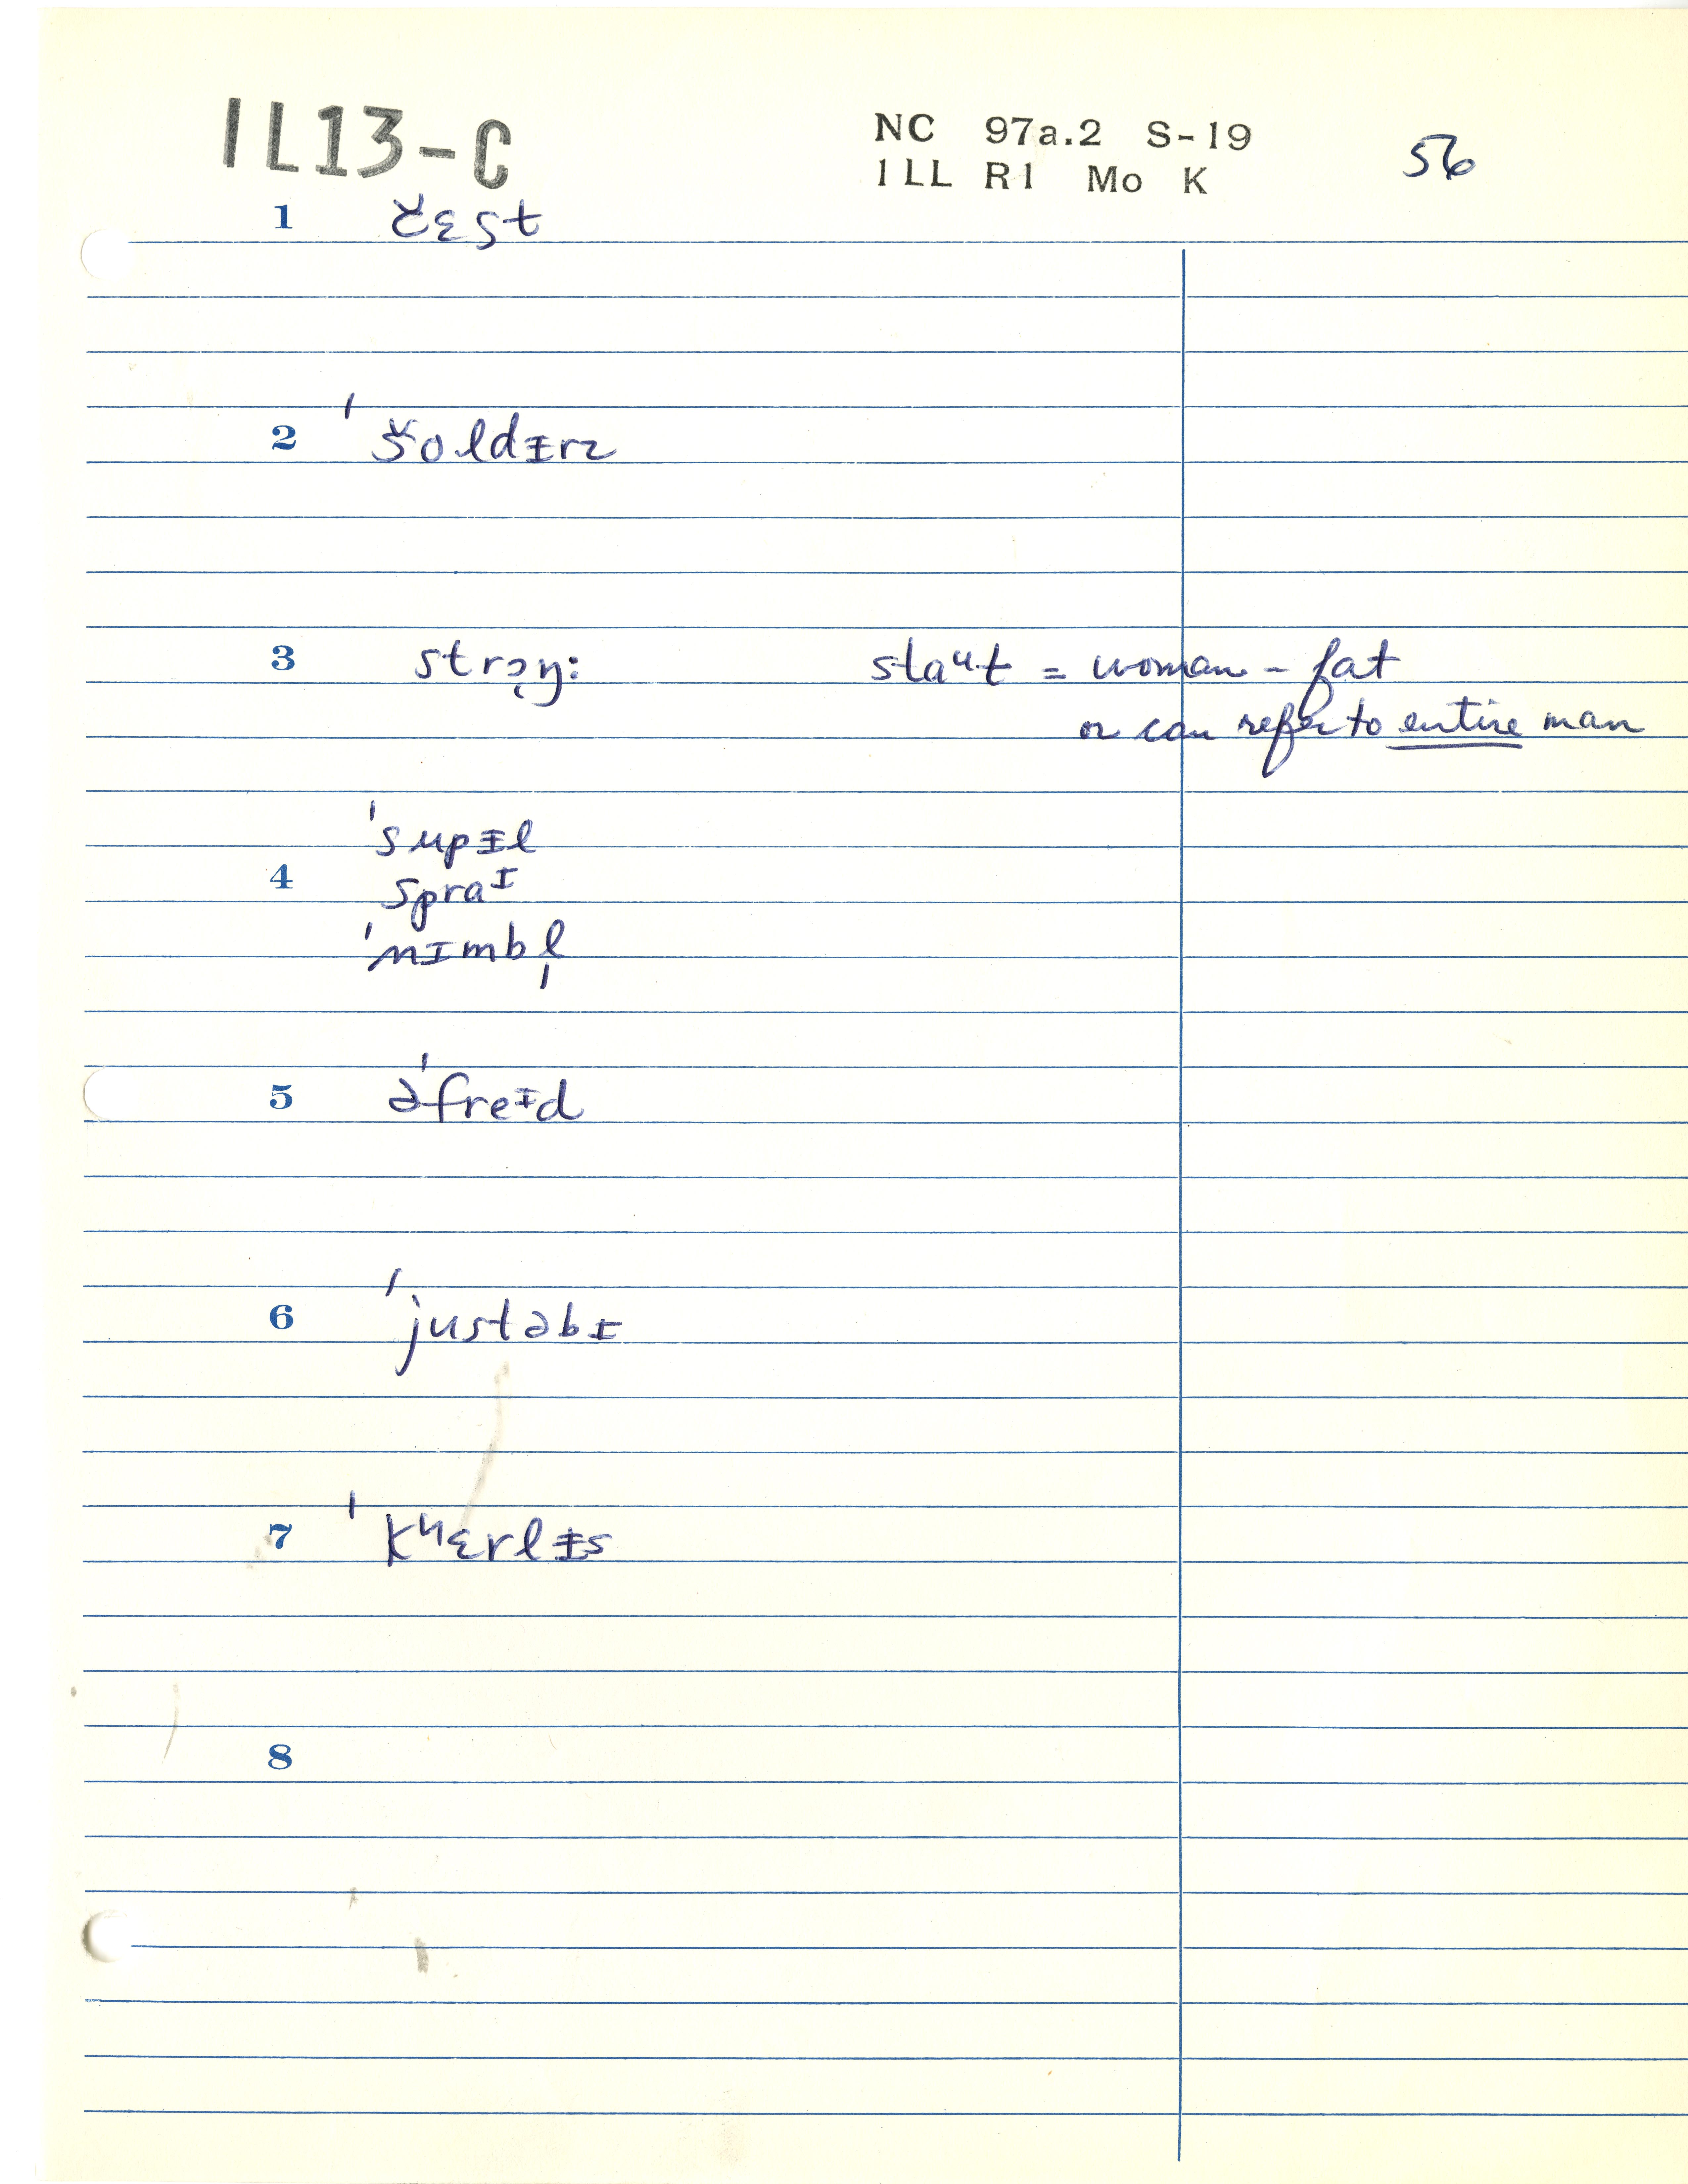 IL13-C
NC 97a.2 S-19
ILL R1 Mo K
56
1 č̵ɛst
2 'šoldɨrz
3 strɔ̨ŋ: staᵘt = woman - fat
or can refer to entire man
'supɨl
4 spraᴵ
'nɪmbl̩
5 ə'freᶧd
6 'justəbɪ
7 'kʰɛrlɨs
8